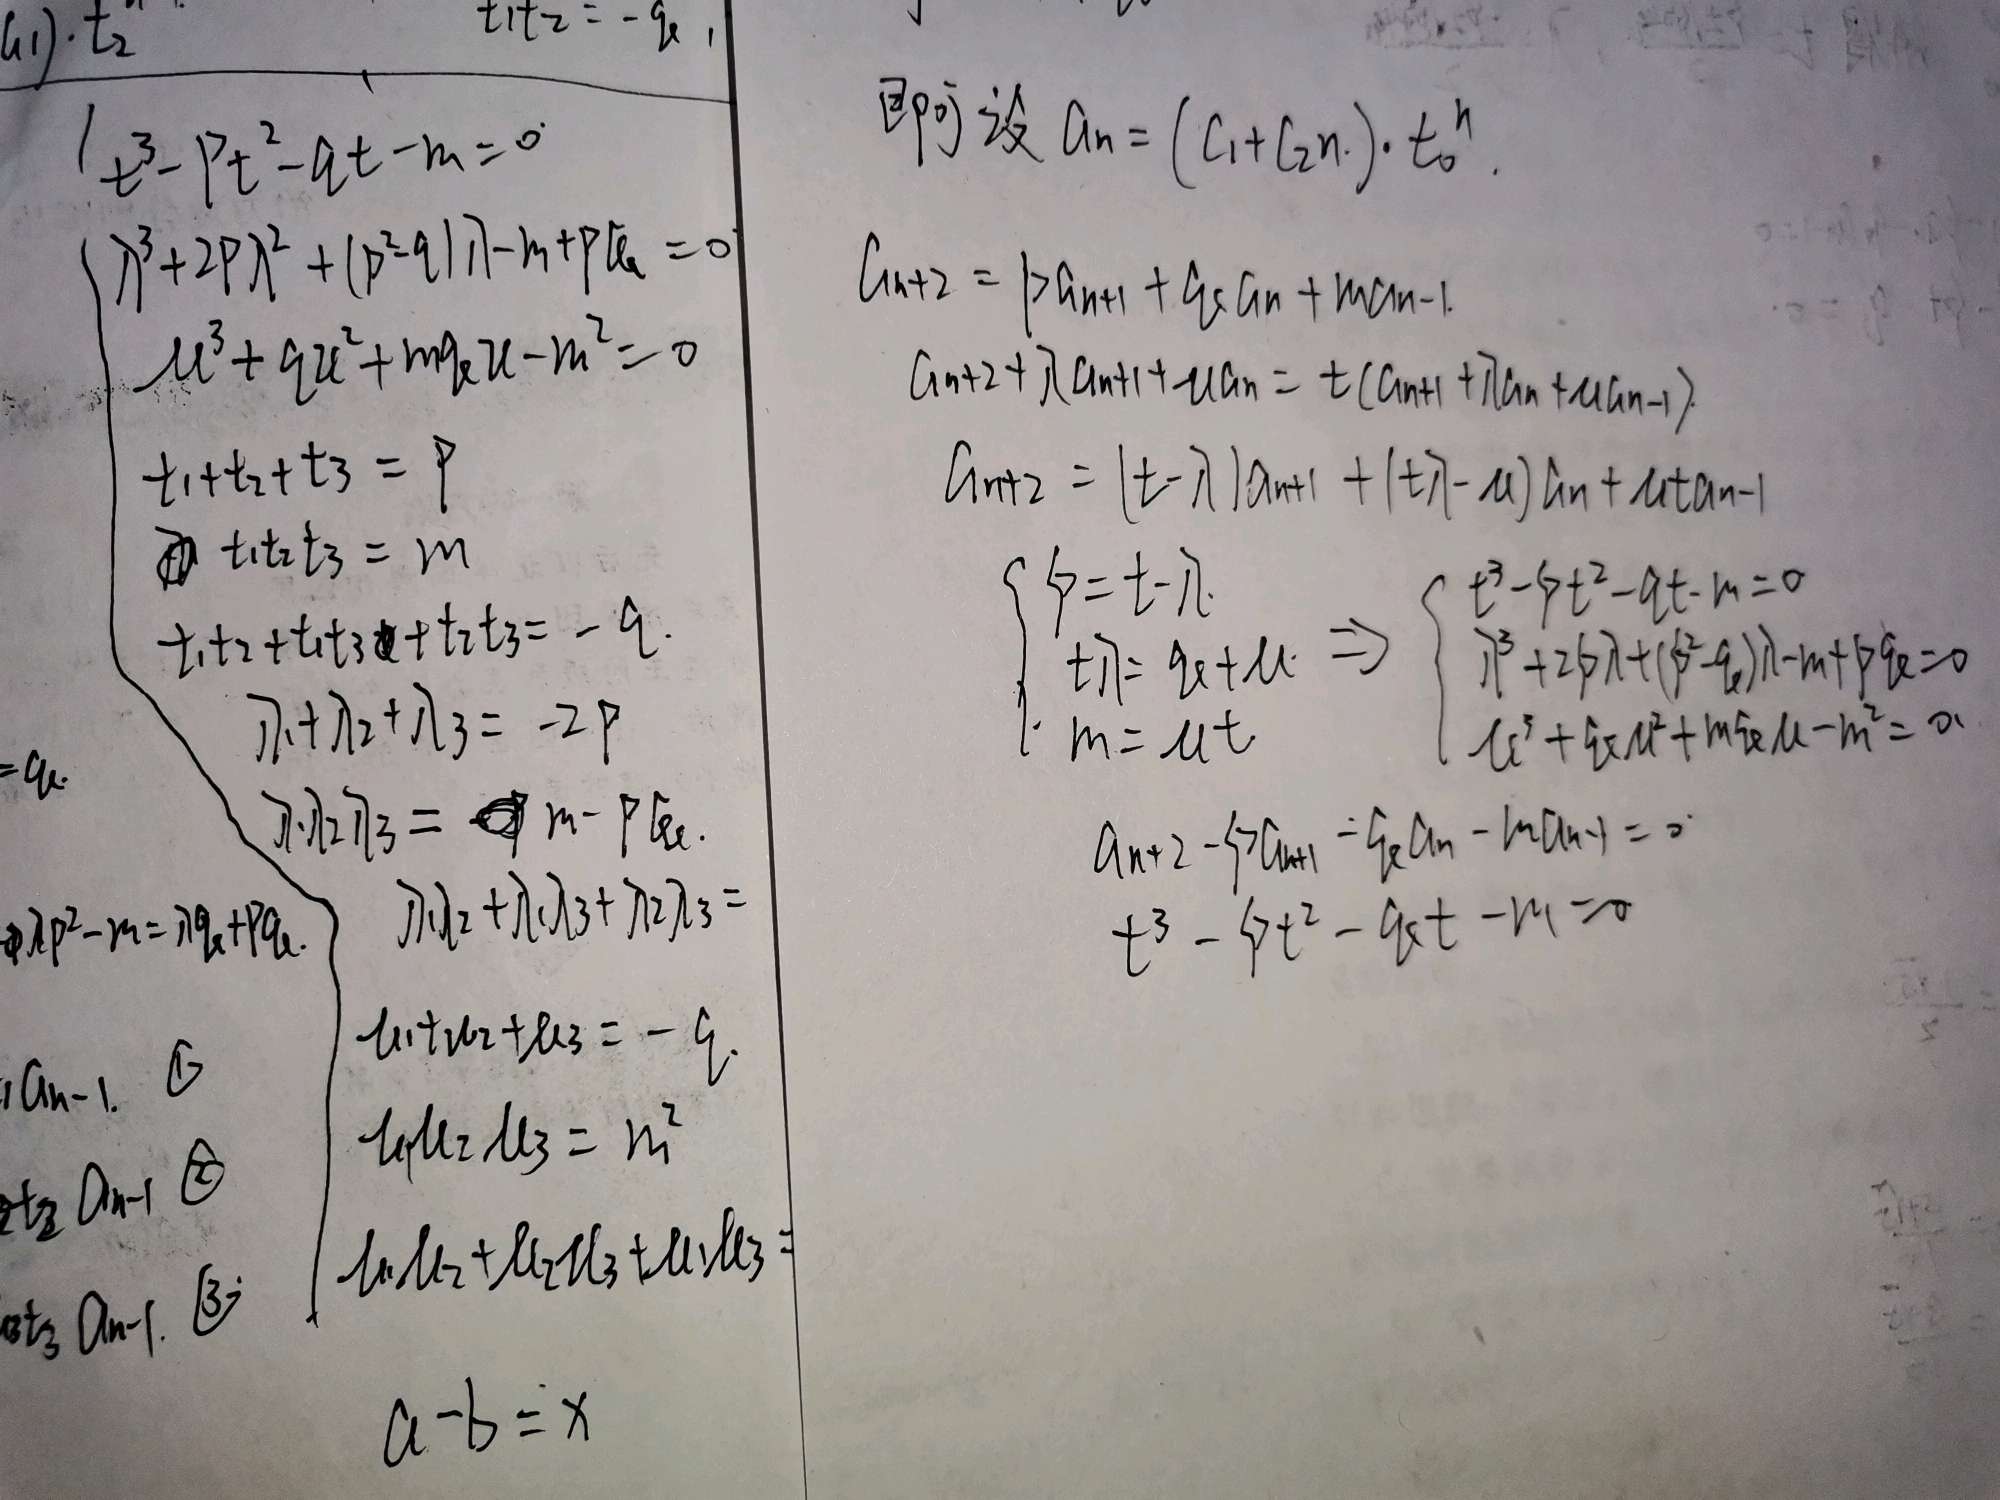 a1)·t₂ⁿ
t₁t₂=-q,
t³-pt²-qt-m=0
λ³+2pλ²+(p²-q)λ-m+pq=0
u³+qu²+mqu-m²=0
t₁+t₂+t₃=p
t₁t₂t₃=m
t₁t₂+t₁t₃+t₂t₃=-q.
λ₁+λ₂+λ₃=-2p
=q.
λ₁λ₂λ₃= m-pq.
λp²-m=λq+pq.
λ₁λ₂+λ₁λ₃+λ₂λ₃=
u₁+u₂+u₃=-q.
an-1. ①
u₁u₂u₃=m²
t₂ an-1 ②
u₁u₂+u₂u₃+u₁u₃=
t₃ an-1. ③
a-b=x
即可设 an=(C₁+C₂n.)·t₀ⁿ.
an+2=pan+1+qan+man-1.
an+2+λan+1+uan=t(an+1+λan+uan-1).
an+2=(t-λ)an+1+(tλ-u)an+utan-1
p=t-λ.
tλ=q+u.
m=ut
⇒
t³-pt²-qt-m=0
λ³+2pλ+(p²-q)λ-m+pq=0
u³+qu²+mqu-m²=0.
an+2-pan+1-qan-man-1=0
t³-pt²-qt-m=0